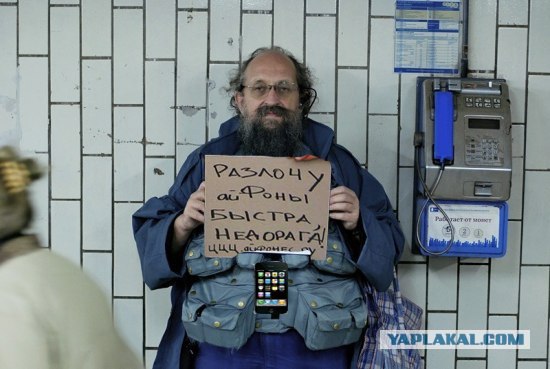 РАЗЛОЧУ
айФОНЫ
БЫСТРА
НЕДОРАГА!
ЦЦЦ.айфонес.ру
Работает от монет
YAPLAKAL.COM